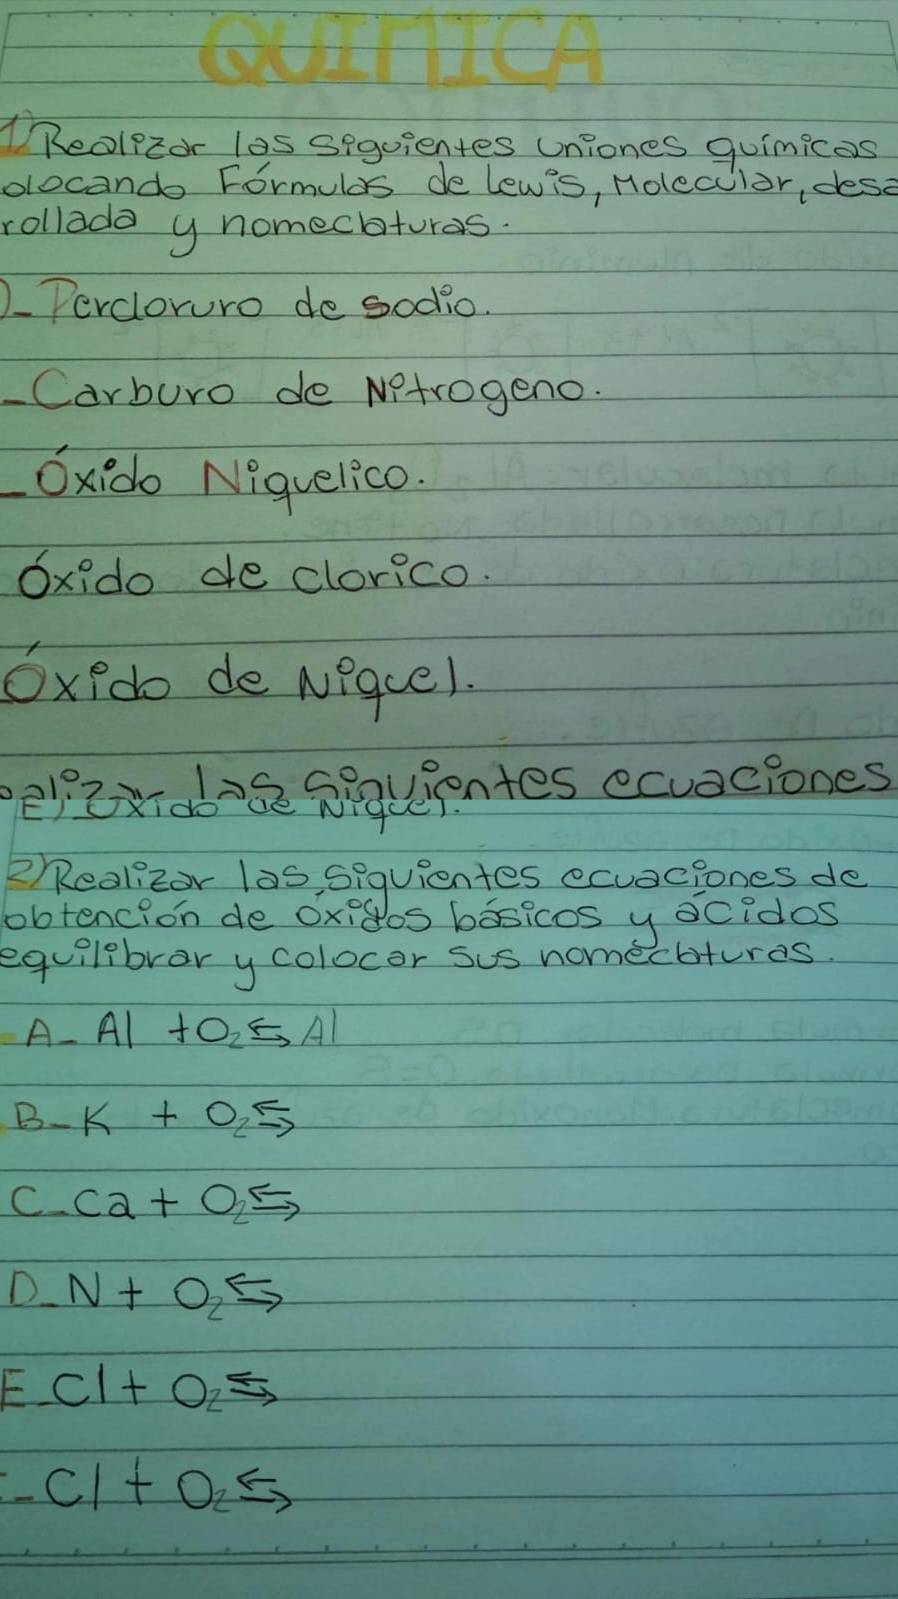 QUIMICA
1) Realizar las siguientes uniones químicas
olocando Fórmulas de Lewis, Molecular, desa
rollada y nomeclaturas.
)- Percloruro de sodio.
- Carburo de Nitrogeno.
- Óxido Niquelico.
Óxido de clorico.
Óxido de Niquel.
ealizar las siguientes ecuaciones
E) Óxido de Niquel.
2) Realizar las siguientes ecuaciones de
obtención de óxidos básicos y ácidos
equilibrar y colocar sus nomeclaturas.
A- Al + O₂ ⇆ Al
B- K + O₂ ⇆
C- Ca + O₂ ⇆
D- N + O₂ ⇆
E- Cl + O₂ ⇆
- Cl + O₂ ⇆